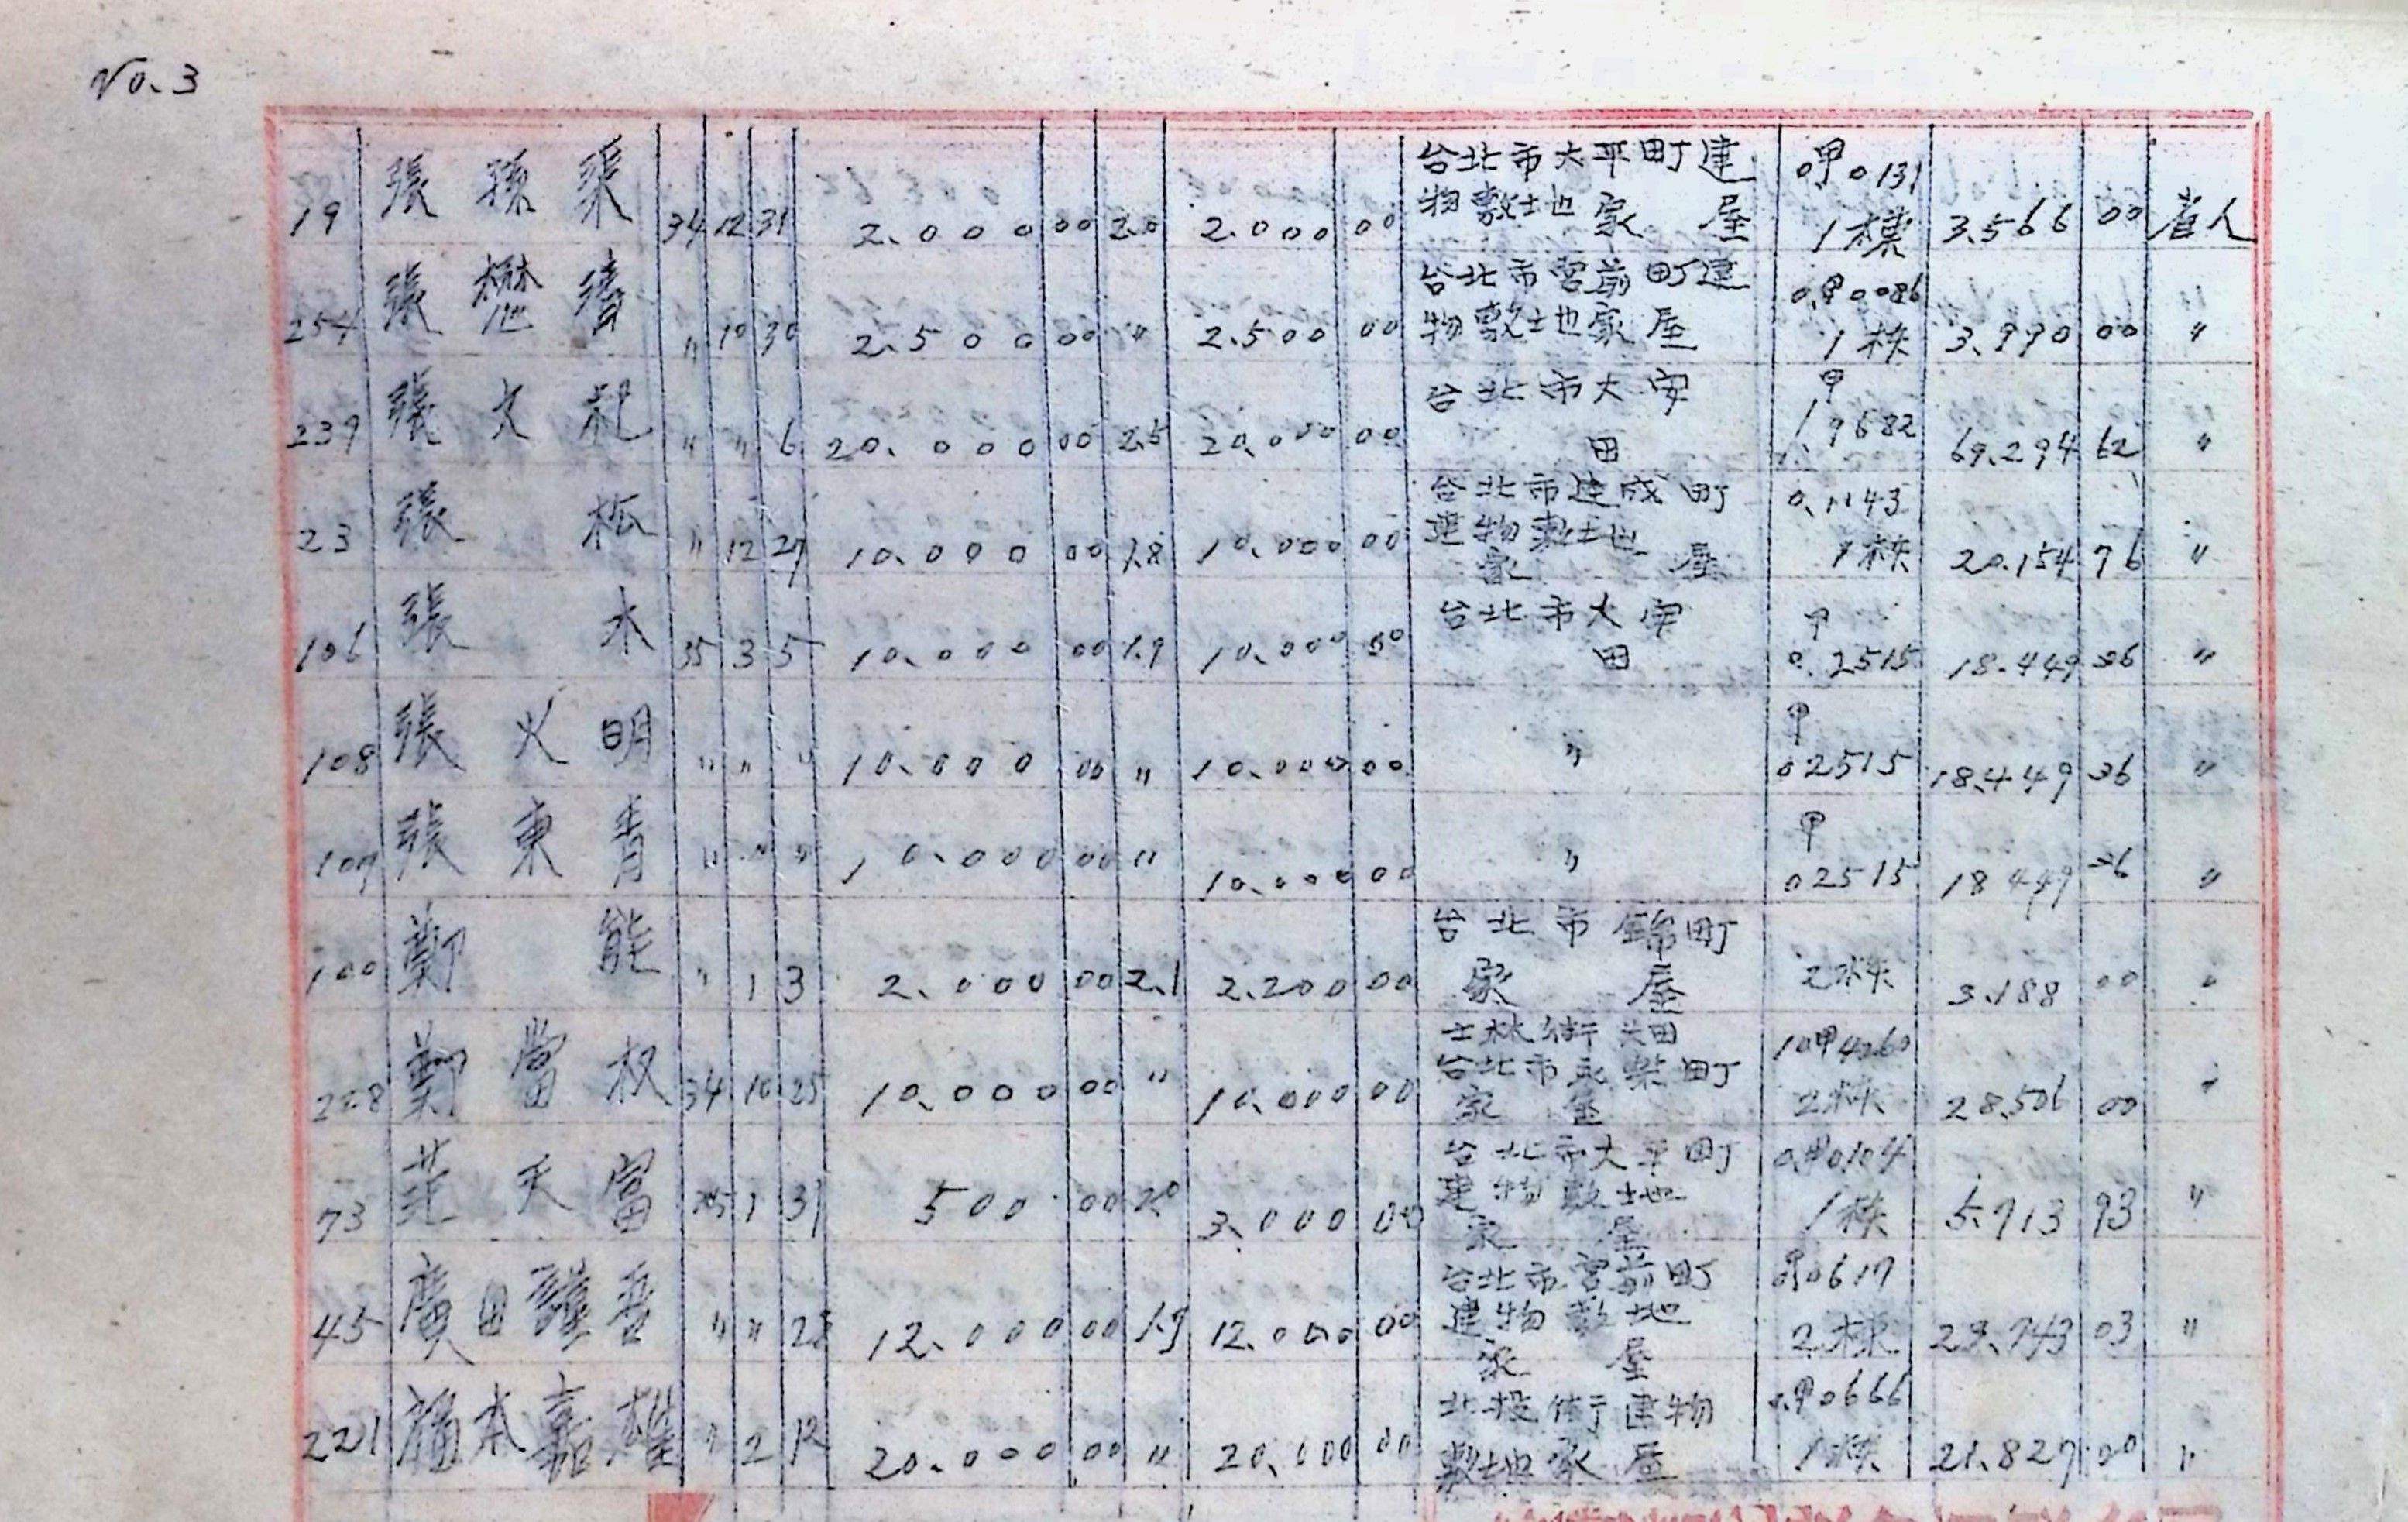 No. 3
19 張 孫 34 12 31 2.000 00 2.0 2.000 00 台北市太平町建物敷地 家屋 0甲0131 1棟 3.566 00 省人
254 張 懋 〃 10 30 2.500 00 〃 2.500 00 台北市宮前町建物敷地家屋 0甲0086 1棟 3.990 00 〃
239 張 文 〃 〃 6 20.000 00 2.5 20.000 00 台北市大安 田 甲 1.9682 69.294 62 〃
23 張 松 〃 12 27 10.000 00 1.8 10.000 00 台北市建成町建物敷地 家屋 0.1143 1棟 20.154 76 〃
106 張 木 35 3 5 10.000 00 1.9 10.000 00 台北市大安 田 甲 0.2515 18.449 36 〃
108 張 火 明 〃 〃 〃 10.000 00 〃 10.000 00 〃 甲 02515 18.449 36 〃
107 張 東 青 〃 〃 〃 10.000 00 〃 10.000 00 〃 甲 02515 18449 36 〃
100 鄭 能 〃 1 3 2.000 00 2.1 2.200 00 台北市錦町 家屋 2棟 3.188 00 〃
228 鄭 當 权 34 10 25 10.000 00 〃 10.000 00 士林街 畑 台北市永楽町 家屋 10甲4260 2棟 28.506 00 〃
73 天 富 35 1 31 500 00 2.0 3.000 00 台北市太平町 建物敷地 家屋 0甲0104 1棟 5.713 93 〃
45 廣田謹吾 〃 〃 28 12.000 00 1.9 12.000 00 台北市宮前町 建物敷地 家屋 0甲0617 2棟 29.743 03 〃
221 福本嘉雄 〃 2 12 20.000 00 〃 20.000 00 北投街建物敷地家屋 0.甲0666 1棟 21.827 00 〃